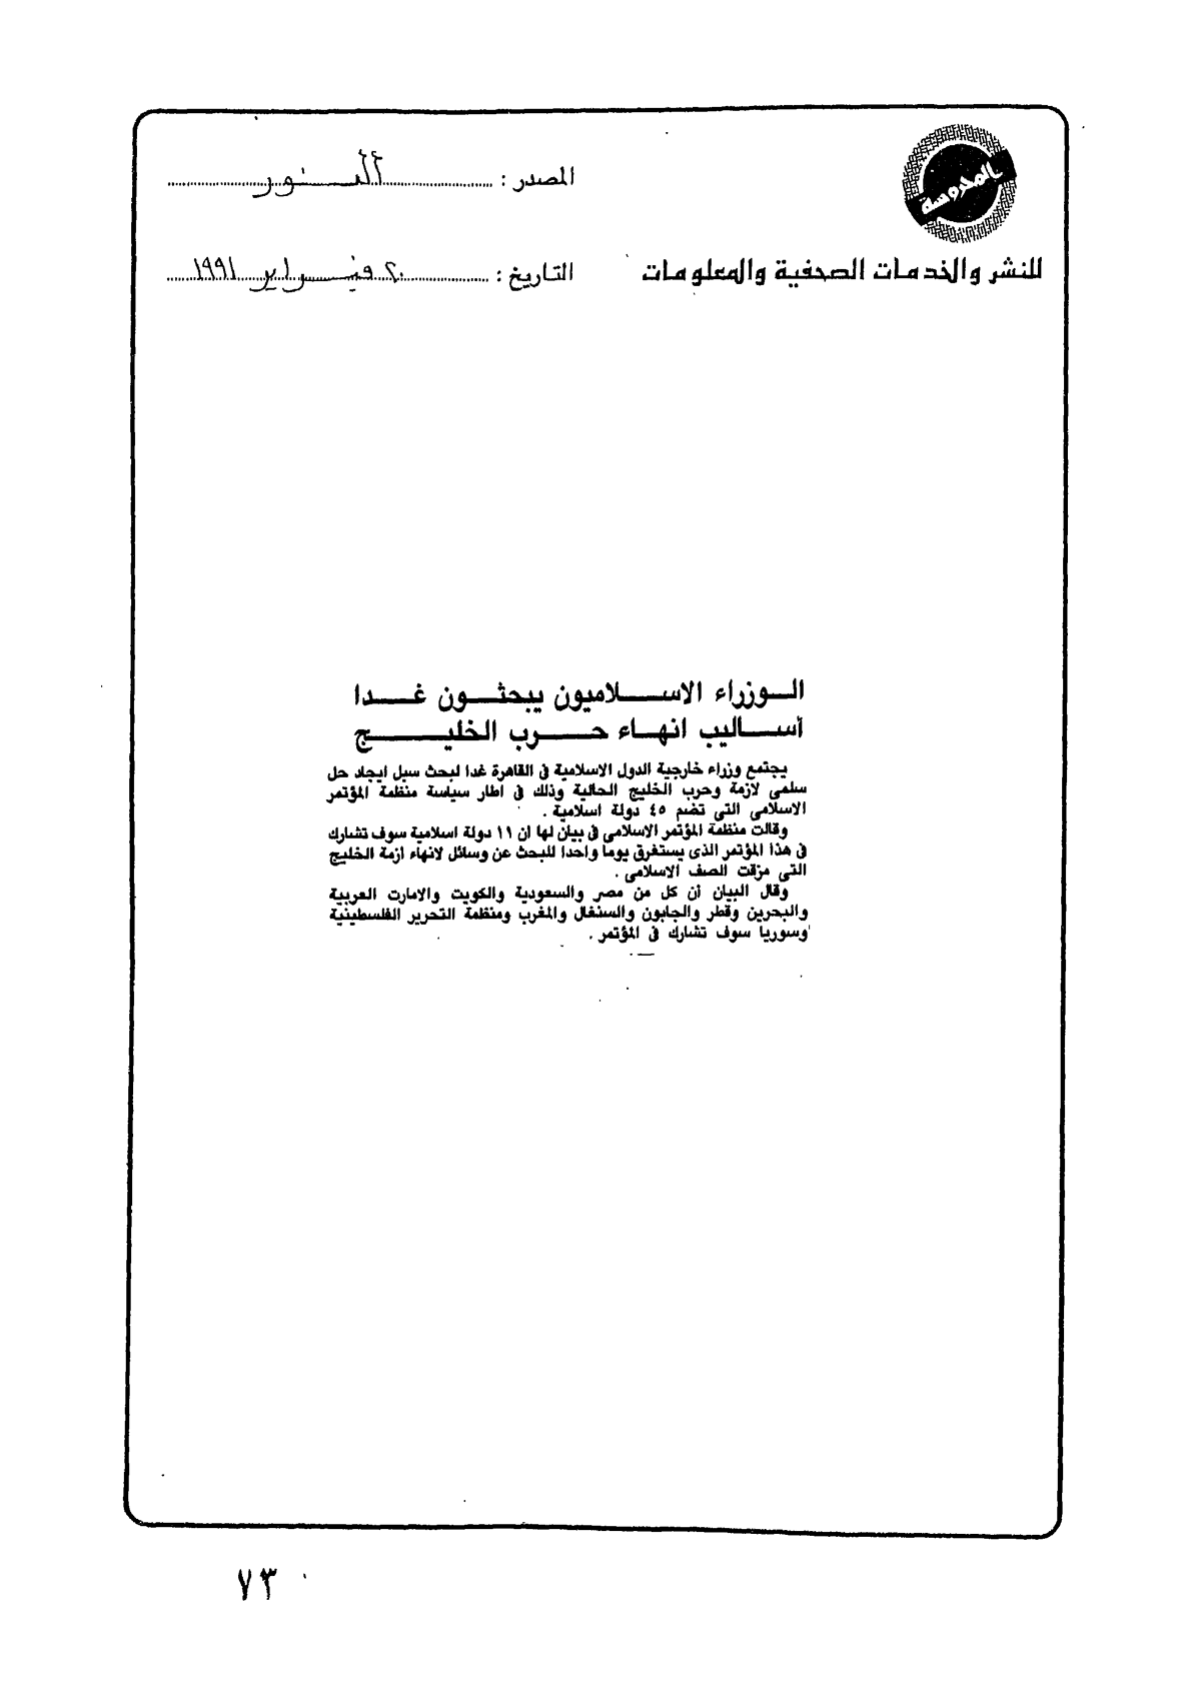 المحروسة
للنشر والخدمات الصحفية والمعلومات
المصدر : النور
التاريخ : ٢٠ فبراير ١٩٩١
الوزراء الاسلاميون يبحثون غدا
أساليب انهاء حرب الخليج
يجتمع وزراء خارجية الدول الاسلامية فى القاهرة غدا لبحث سبل ايجاد حل
سلمى لازمة وحرب الخليج الحالية وذلك فى اطار سياسة منظمة المؤتمر
الاسلامى التى تضم ٤٥ دولة اسلامية .
وقالت منظمة المؤتمر الاسلامى فى بيان لها أن ١١ دولة اسلامية سوف تشارك
فى هذا المؤتمر الذى يستغرق يوما واحدا للبحث عن وسائل لانهاء أزمة الخليج
التى مزقت الصف الاسلامى .
وقال البيان أن كل من مصر والسعودية والكويت والامارت العربية
والبحرين وقطر والجابون والسنغال والمغرب ومنظمة التحرير الفلسطينية
وسوريا سوف تشارك فى المؤتمر .
٧٣